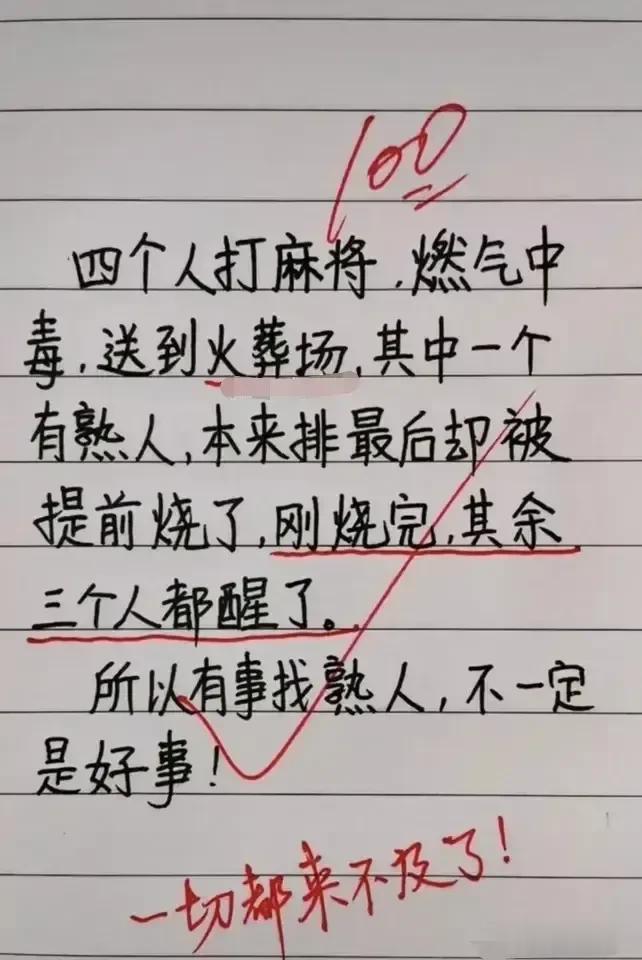 100
四个人打麻将,燃气中
毒,送到火葬场,其中一个
有熟人,本来排最后却被
提前烧了,刚烧完,其余
三个人都醒了。
所以有事找熟人,不一定
是好事!
一切都来不及了!